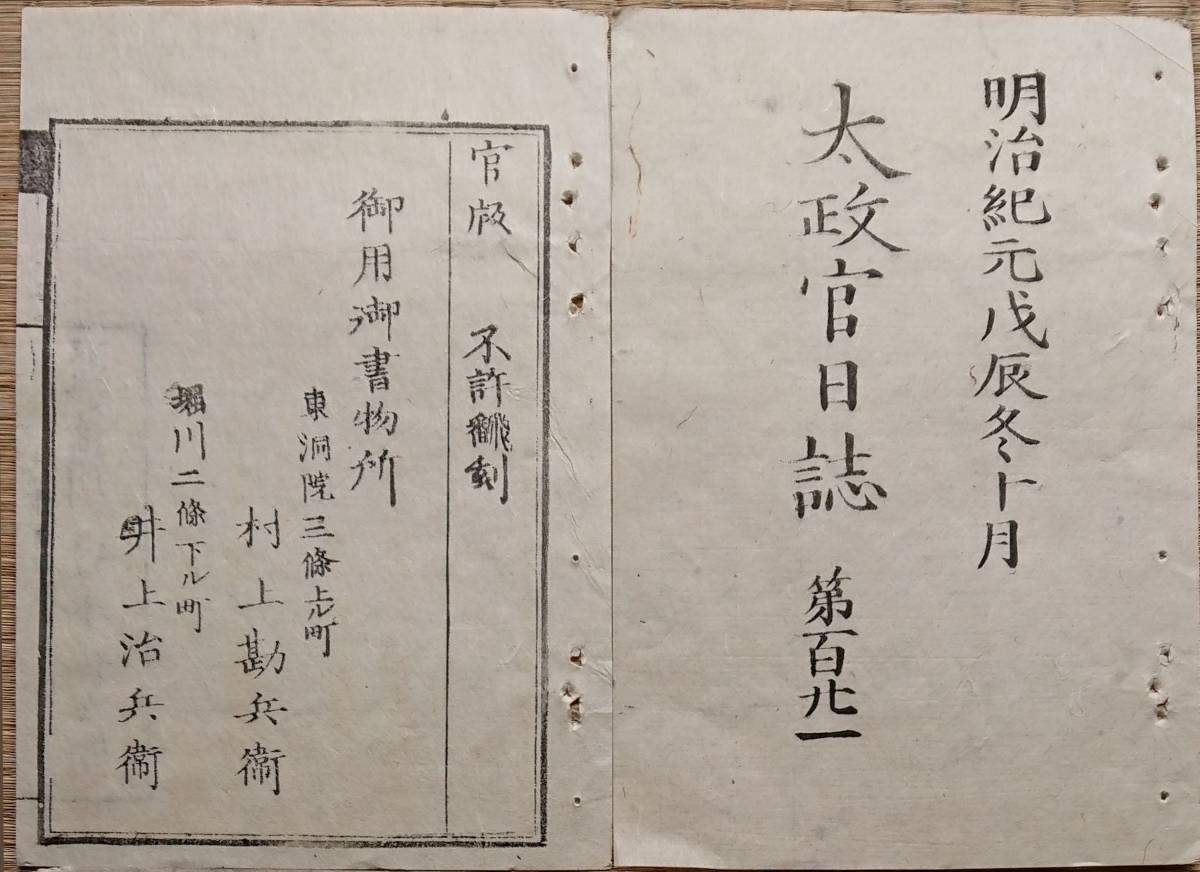 明治紀元戊辰冬十月
太政官日誌 第百廿一
官版 不許翻刻
御用御書物所
東洞院三條上ル町
村上勘兵衞
堀川二條下ル町
井上治兵衞